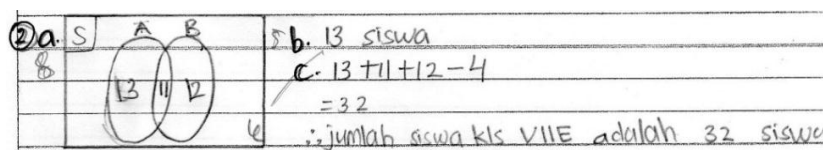 ② a. S A B
13 11 12
8
b. 13 siswa
c. 13 + 11 + 12 - 4
= 32
∴ jumlah siswa kls VIIE adalah 32 siswa